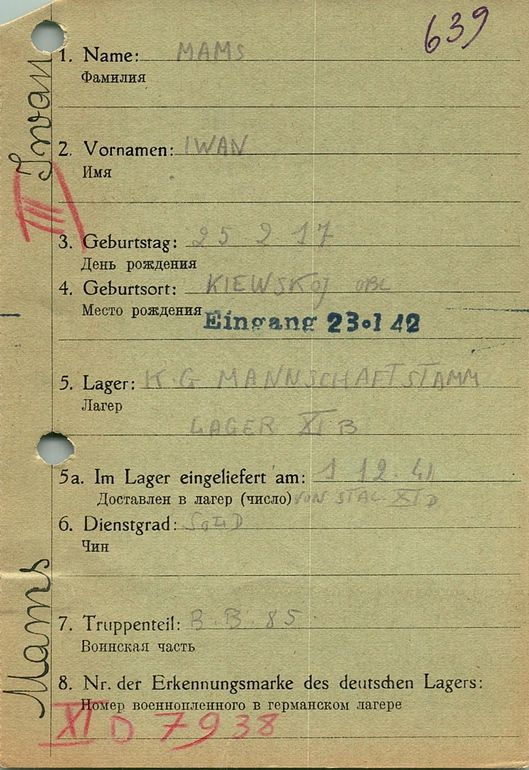 639
1. Name: MAMS
Фамилия
2. Vornamen: IWAN
Имя
3. Geburtstag: 25 2 17
День рождения
4. Geburtsort: KIEWSKOJ OBL
Место рождения
Eingang 23.1 42
5. Lager: K.G MANNSCHAFTSTAMM
Лагер
LAGER XI B
5a. Im Lager eingeliefert am: 1 12. 41
Доставлен в лагер (число) VON STAL. XI D
6. Dienstgrad: SOLD
Чин
7. Truppenteil: B. B. 85
Воинская часть
8. Nr. der Erkennungsmarke des deutschen Lagers:
Номер военнопленного в германском лагере
XI D 7938
Mams Iwan
III